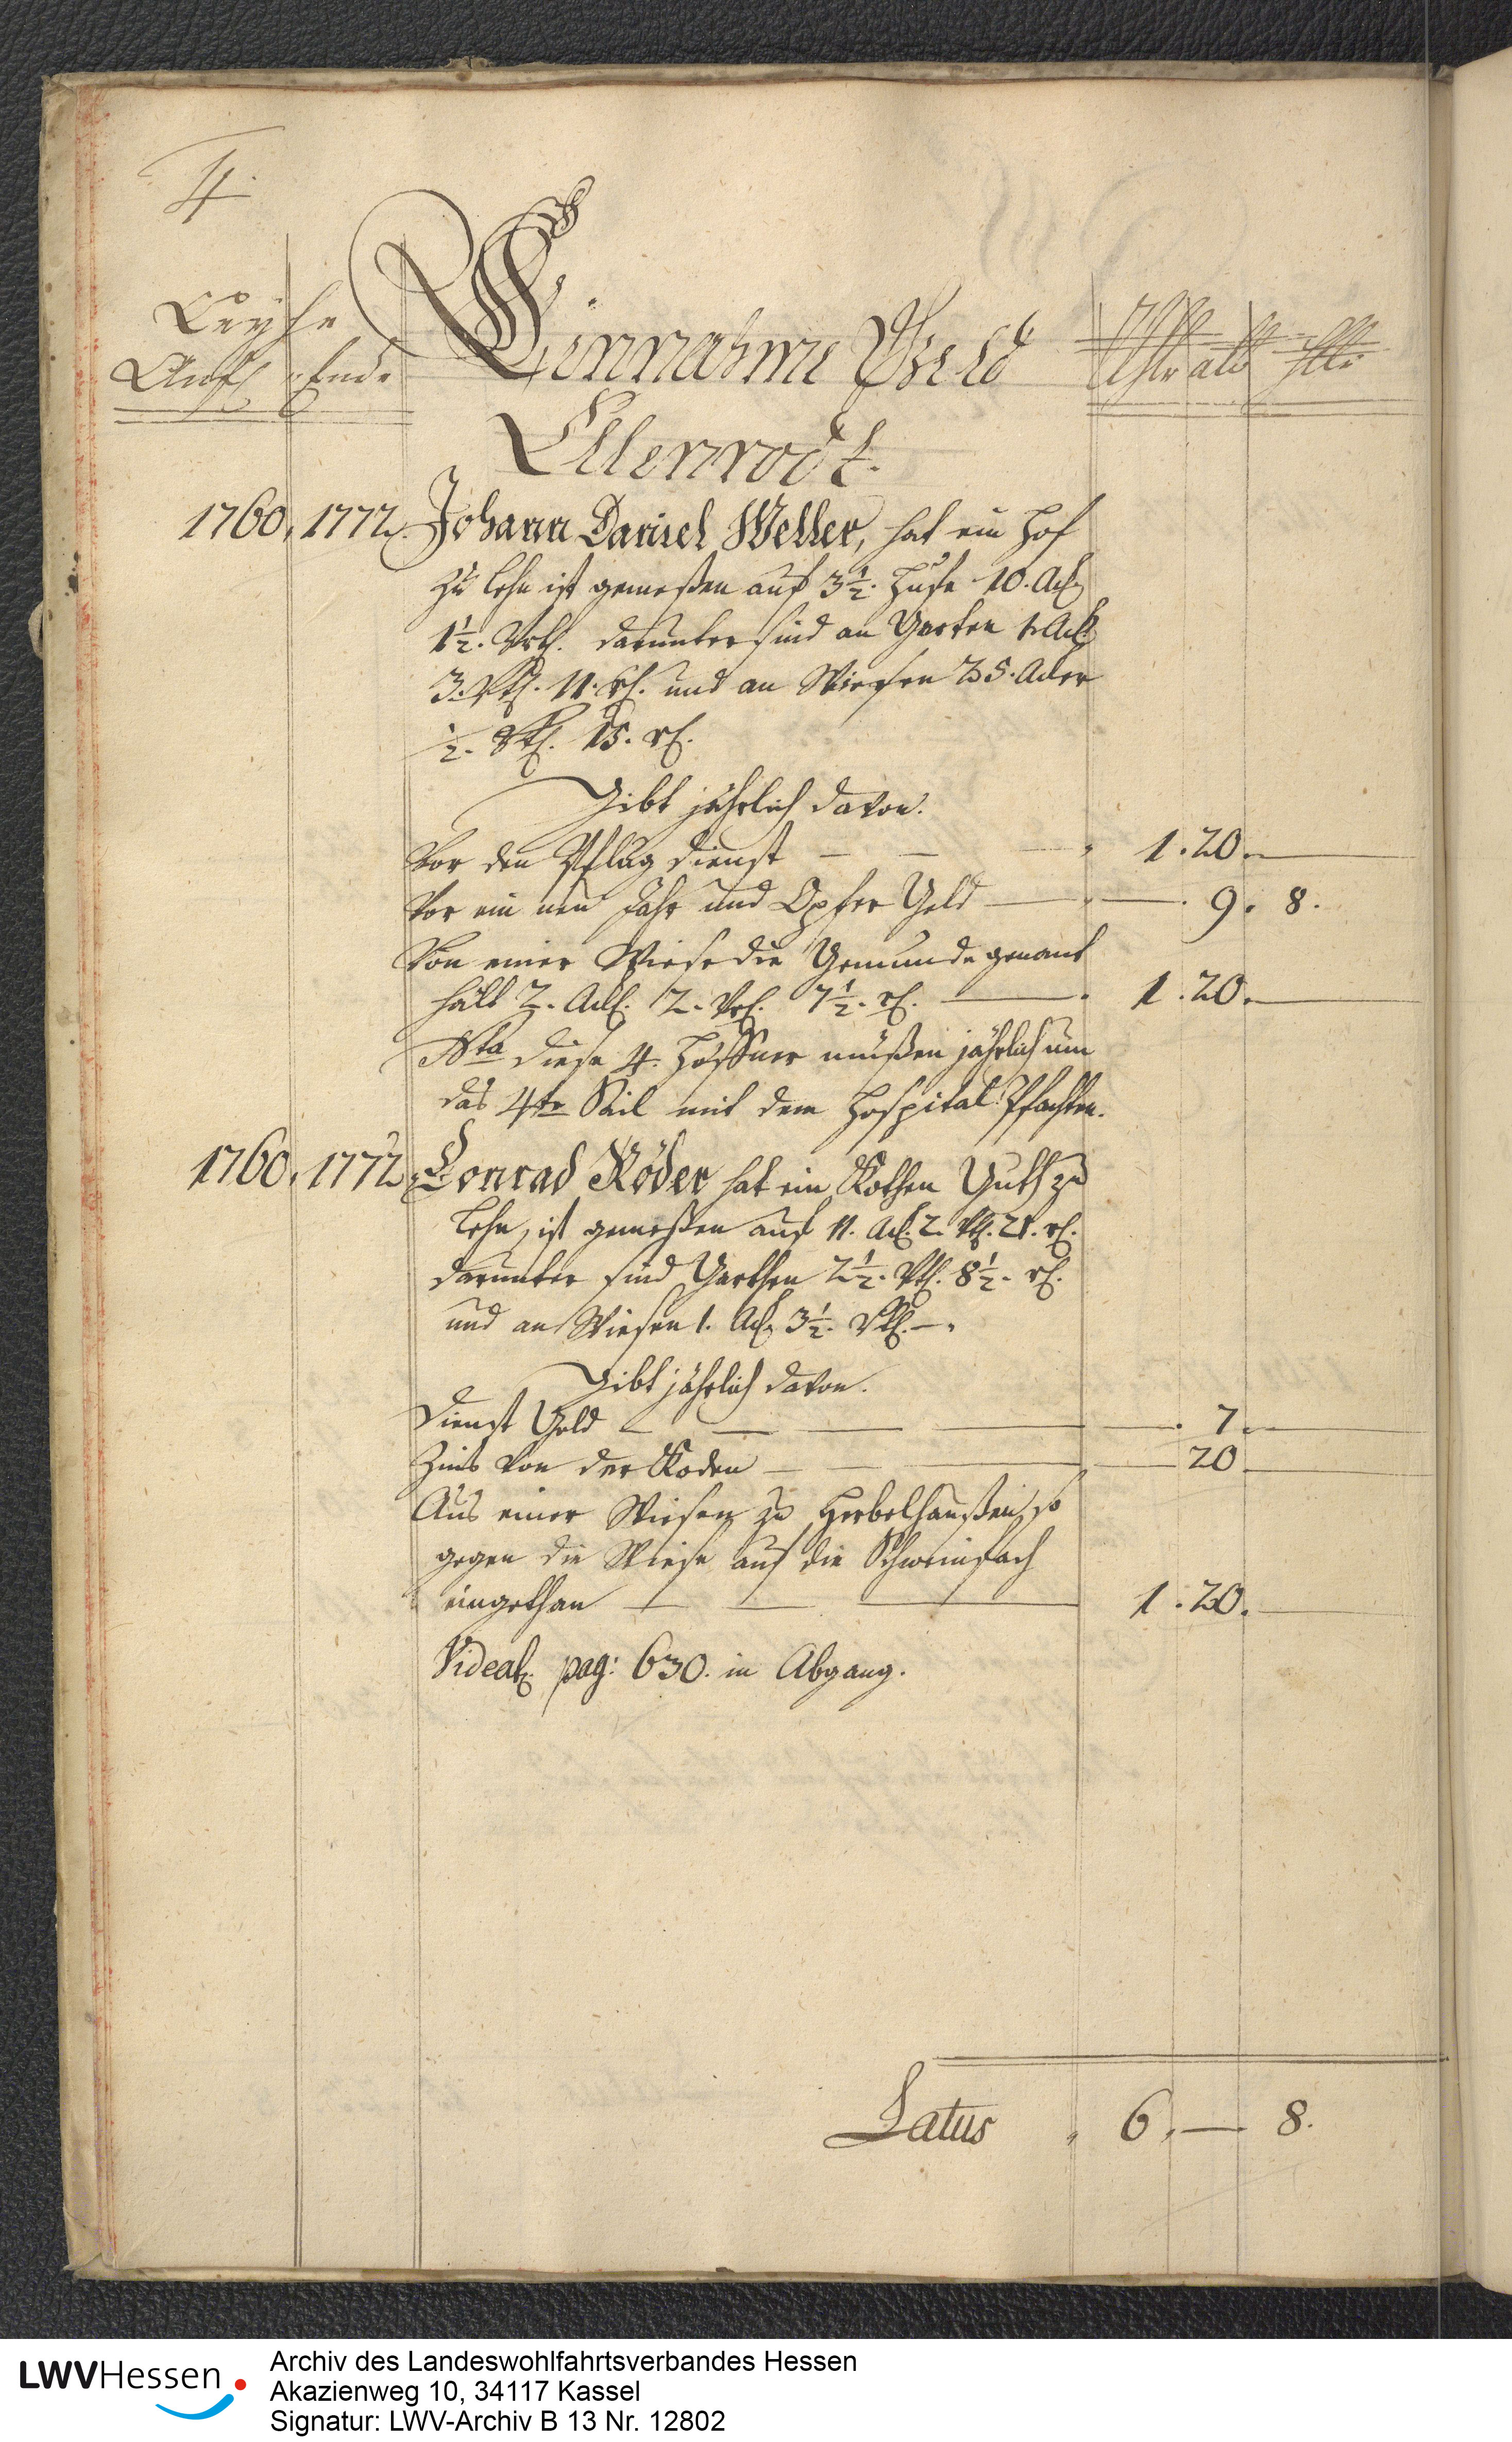 4.
Leyhe
Anf. Ende
Einnahme Geld
Thlr alb hllr
Ellenrodt.
1760. 1772. Johann Daniel Weller, hat ein Hof
zu Lehn ist gemeßen auf 3½. Hufe 10. Ack.
1½. Vrtl. darunter sind an Garten 1. Ack
3. Vtl. 11. rt. und an Wiesen 25. Acker
½. Vtl. 15. rt.
Gibt jährlich davon.
Vor den Pflug dienst — — — 1. 20. —
Vor ein neu Jahr und Opfer Geld — — . 9. 8.
Von einer Wiese die Gemeinde genant
hält 2. Ack. 2. Vrt. 7½. rt. — 1. 20. —
Nta diese 4. Höffner müßen jährlich um
das 4te Teil mit dem Hospital Pfachten.
1760. 1772. Conrad Röder hat ein Kothen Guth zu
Lehn, ist gemeßen auf 11. Ack. 2. Vtl. 21. rt.
darunter sind Garthen 2½. Vtl. 8½. rt.
und an Wiesen 1. Ack. 3½. Vtl. —.
Gibt jährlich davon.
Dienst Geld — — — — . 7. —
Zins von der Koden — — — 20 —
Aus einer Wiesen zu Herbelhaußen, so
gegen die Wiese auf die Schweinfach
eingethan — — — 1. 20. —
Videat. pag: 630. in Abgang.
Latus . 6. — 8.
LWVHessen
Archiv des Landeswohlfahrtsverbandes Hessen
Akazienweg 10, 34117 Kassel
Signatur: LWV-Archiv B 13 Nr. 12802